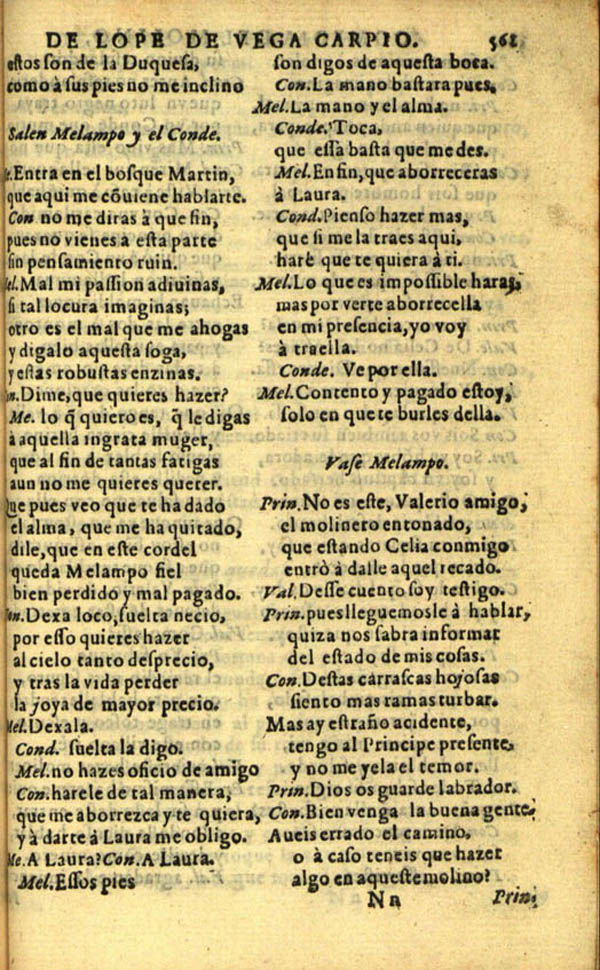 DE LOPE DE VEGA CARPIO. 561
estos son de la Duquesa,
como à sus pies no me inclino
Salen Melampo y el Conde.
Entra en el bosque Martin,
que aqui me cõuiene hablarte.
Con no me diras à que fin,
pues no vienes à esta parte
sin pensamiento ruin.
Mal mi passion adiuinas,
si tal locura imaginas;
otro es el mal que me ahogas
y digalo aquesta soga,
y estas robustas enzinas.
Dime, que quieres hazer?
Me. lo q̃ quiero es, q̃ le digas
à aquella ingrata muger,
que al fin de tantas fatigas
aun no me quieres querer.
Que pues veo que te ha dado
el alma, que me ha quitado,
dile, que en este cordel
queda Melampo fiel
bien perdido y mal pagado.
Dexa loco, suelta necio,
por esso quieres hazer
al cielo tanto desprecio,
y tras la vida perder
la joya de mayor precio.
Mel. Dexala.
Cond. suelta la digo.
Mel. no hazes oficio de amigo
Con. harele de tal manera,
que me aborrezca y te quiera,
y à darte à Laura me obligo.
Me. A Laura? Con. A Laura.
Mel. Essos pies
son digos de aquesta boca.
Con. La mano bastara pues.
Mel. La mano y el alma.
Conde. Toca,
que essa basta que me des.
Mel. En fin, que aborreceras
à Laura.
Cond. Pienso hazer mas,
que si me la traes aqui,
harè que te quiera à ti.
Mel. Lo que es impossible haras,
mas por verte aborrecella
en mi presencia, yo voy
à traella.
Conde. Ve por ella.
Mel. Contento y pagado estoy,
solo en que te burles della.
Vase Melampo.
Prin. No es este, Valerio amigo,
el molinero entonado,
que estando Celia conmigo
entrò à dalle aquel recado.
Val. Desse cuento soy testigo.
Prin. pues lleguemosle à hablar,
quiza nos sabra informar
del estado de mis cosas.
Con. Destas carrascas hojosas
siento mas ramas turbar.
Mas ay estraño acidente,
tengo al Principe presente,
y no me yela el temor.
Prin. Dios os guarde labrador.
Con. Bien venga la buena gente,
Aueis errado el camino,
o à caso teneis que hazer
algo en aqueste molino?
Nn Prin.